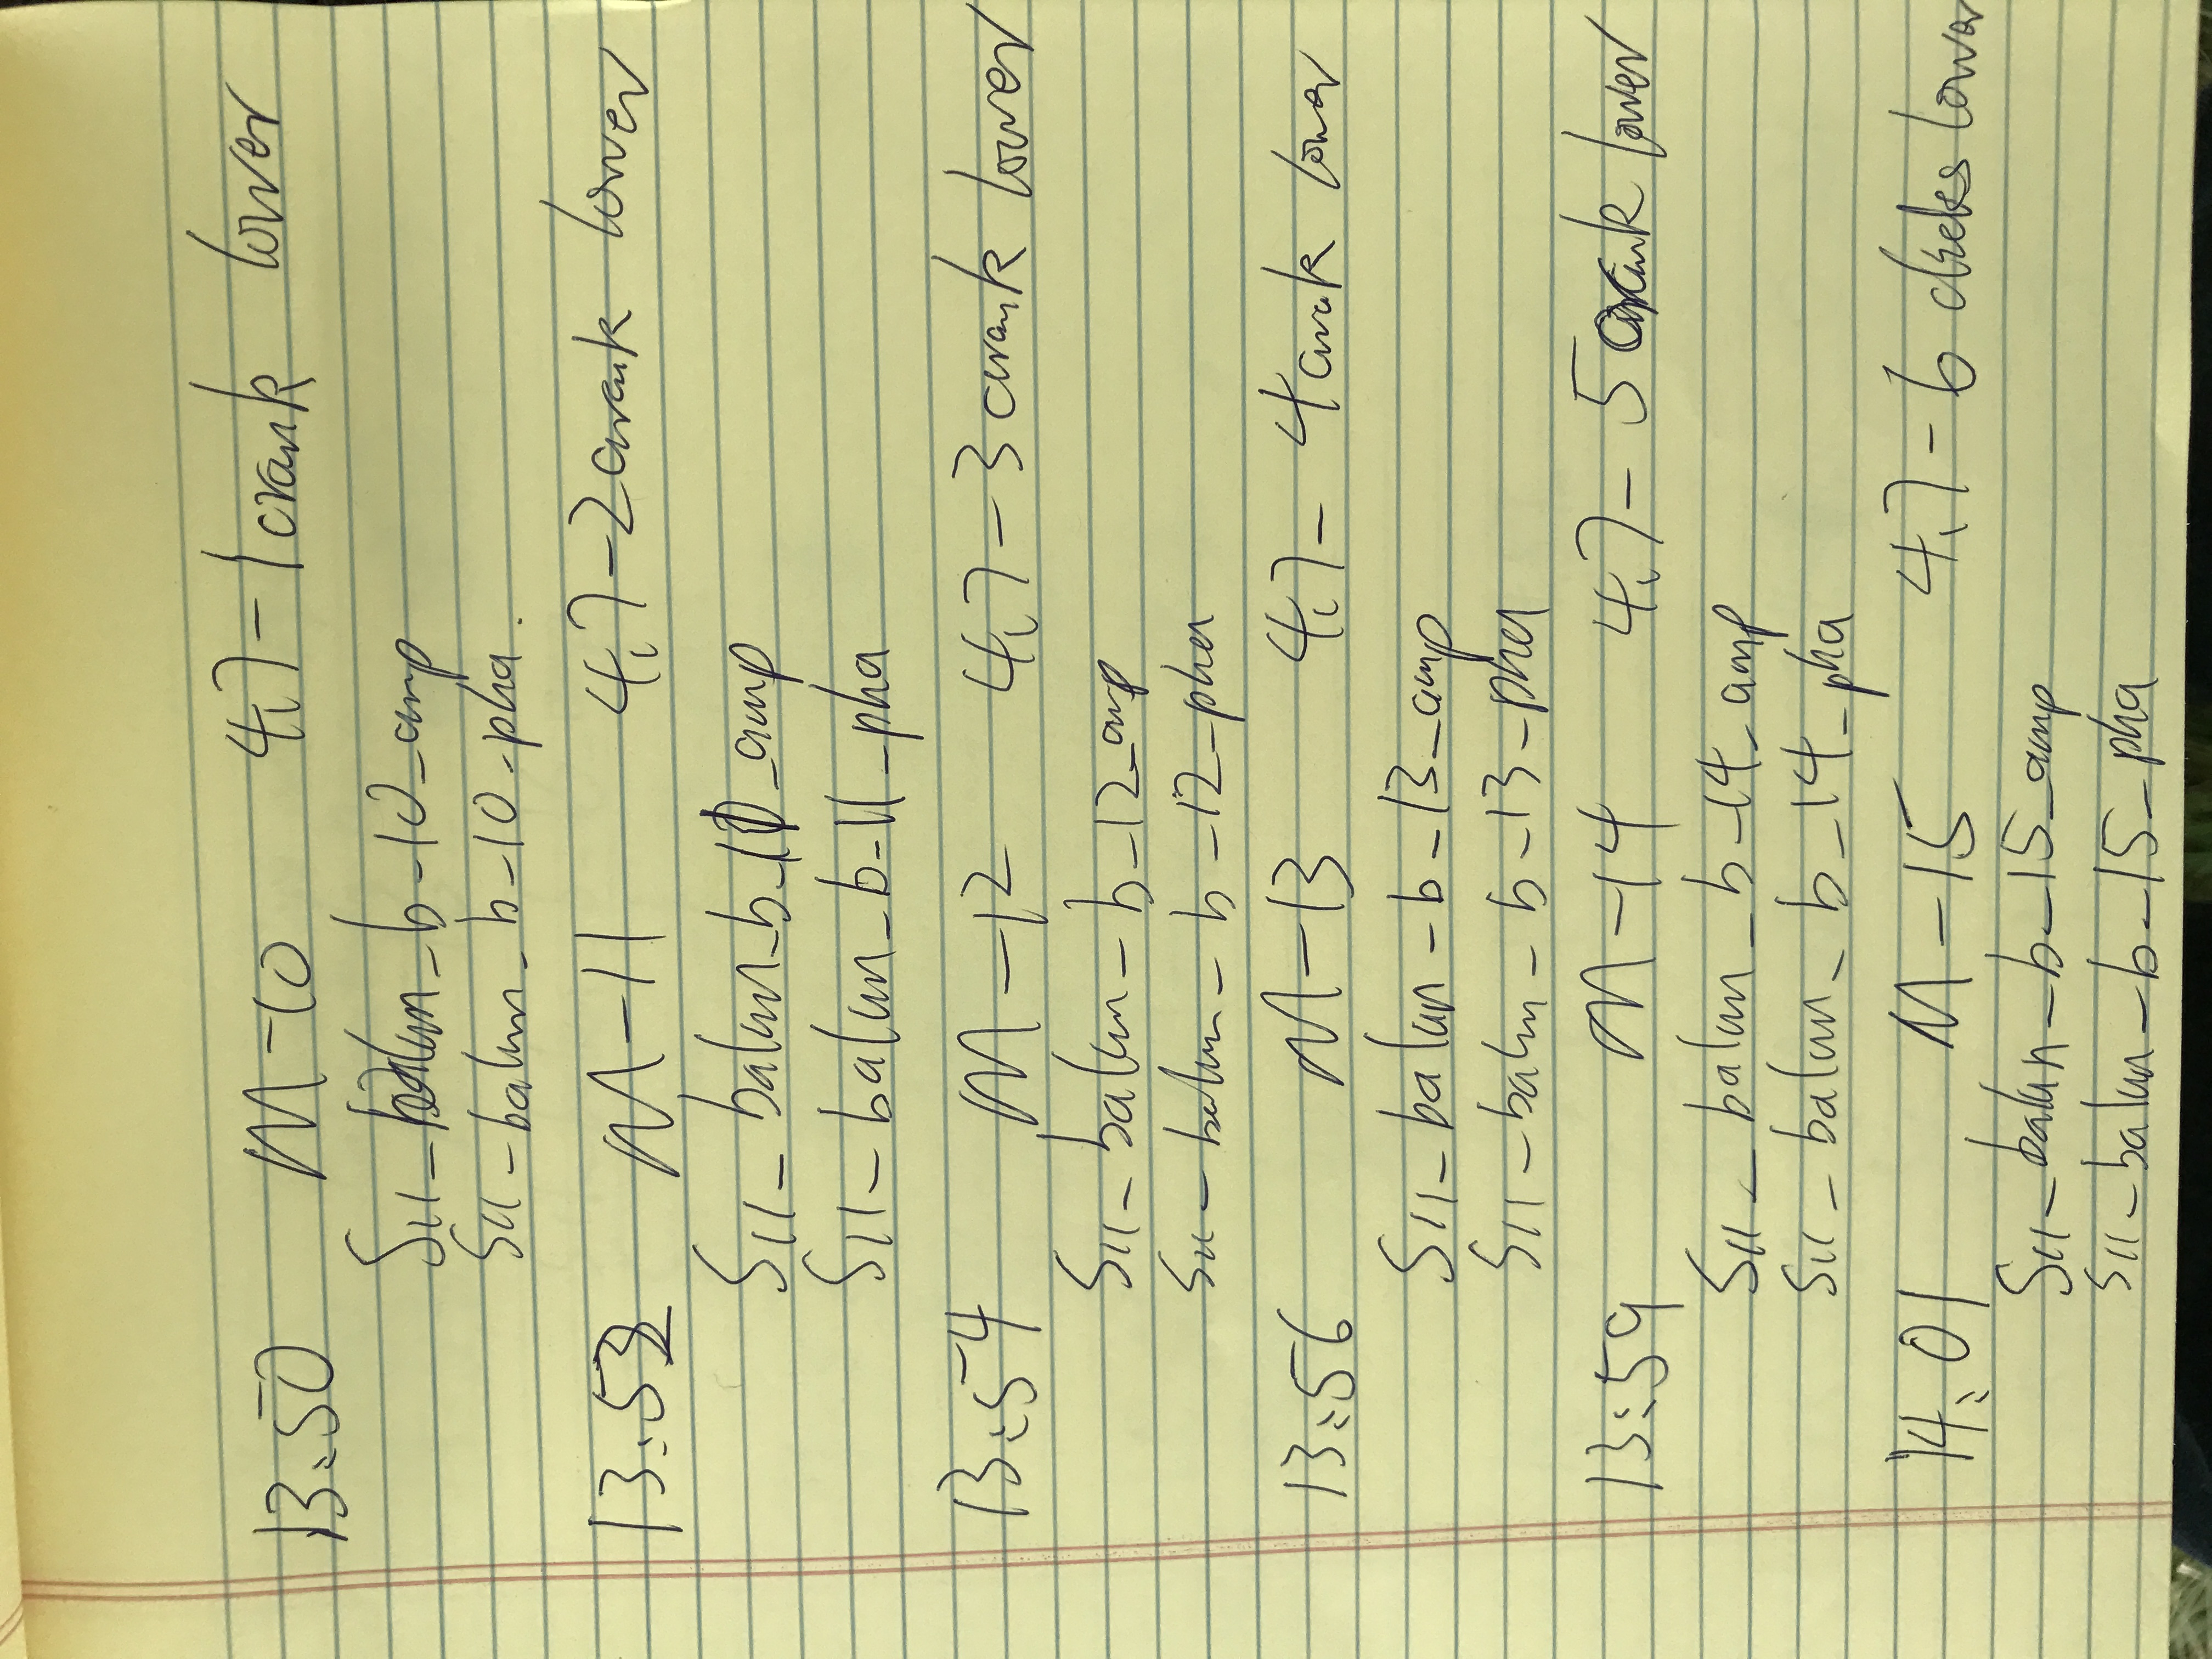 13:50 M-10 4,7 - 1 crank lower
S11-balun-b-10-amp
S11-balun-b-10-pha.
13:52 M-11 4,7 - 2 crank lower
S11-balun-b-11-amp
S11-balun-b-11-pha
13:54 M-12 4,7 - 3 crank lower
S11-balun-b-12-amp
S11-balun-b-12-pha
13:56 M-13 4,7 - 4 crank lower
S11-balun-b-13-amp
S11-balun-b-13-pha
13:59 M-14 4,7 - 5 crank lower
S11-balun-b-14-amp
S11-balun-b-14-pha
14:01 M-15 4,7 - 6 lower
S11-balun-b-15-amp
S11-balun-b-15-pha